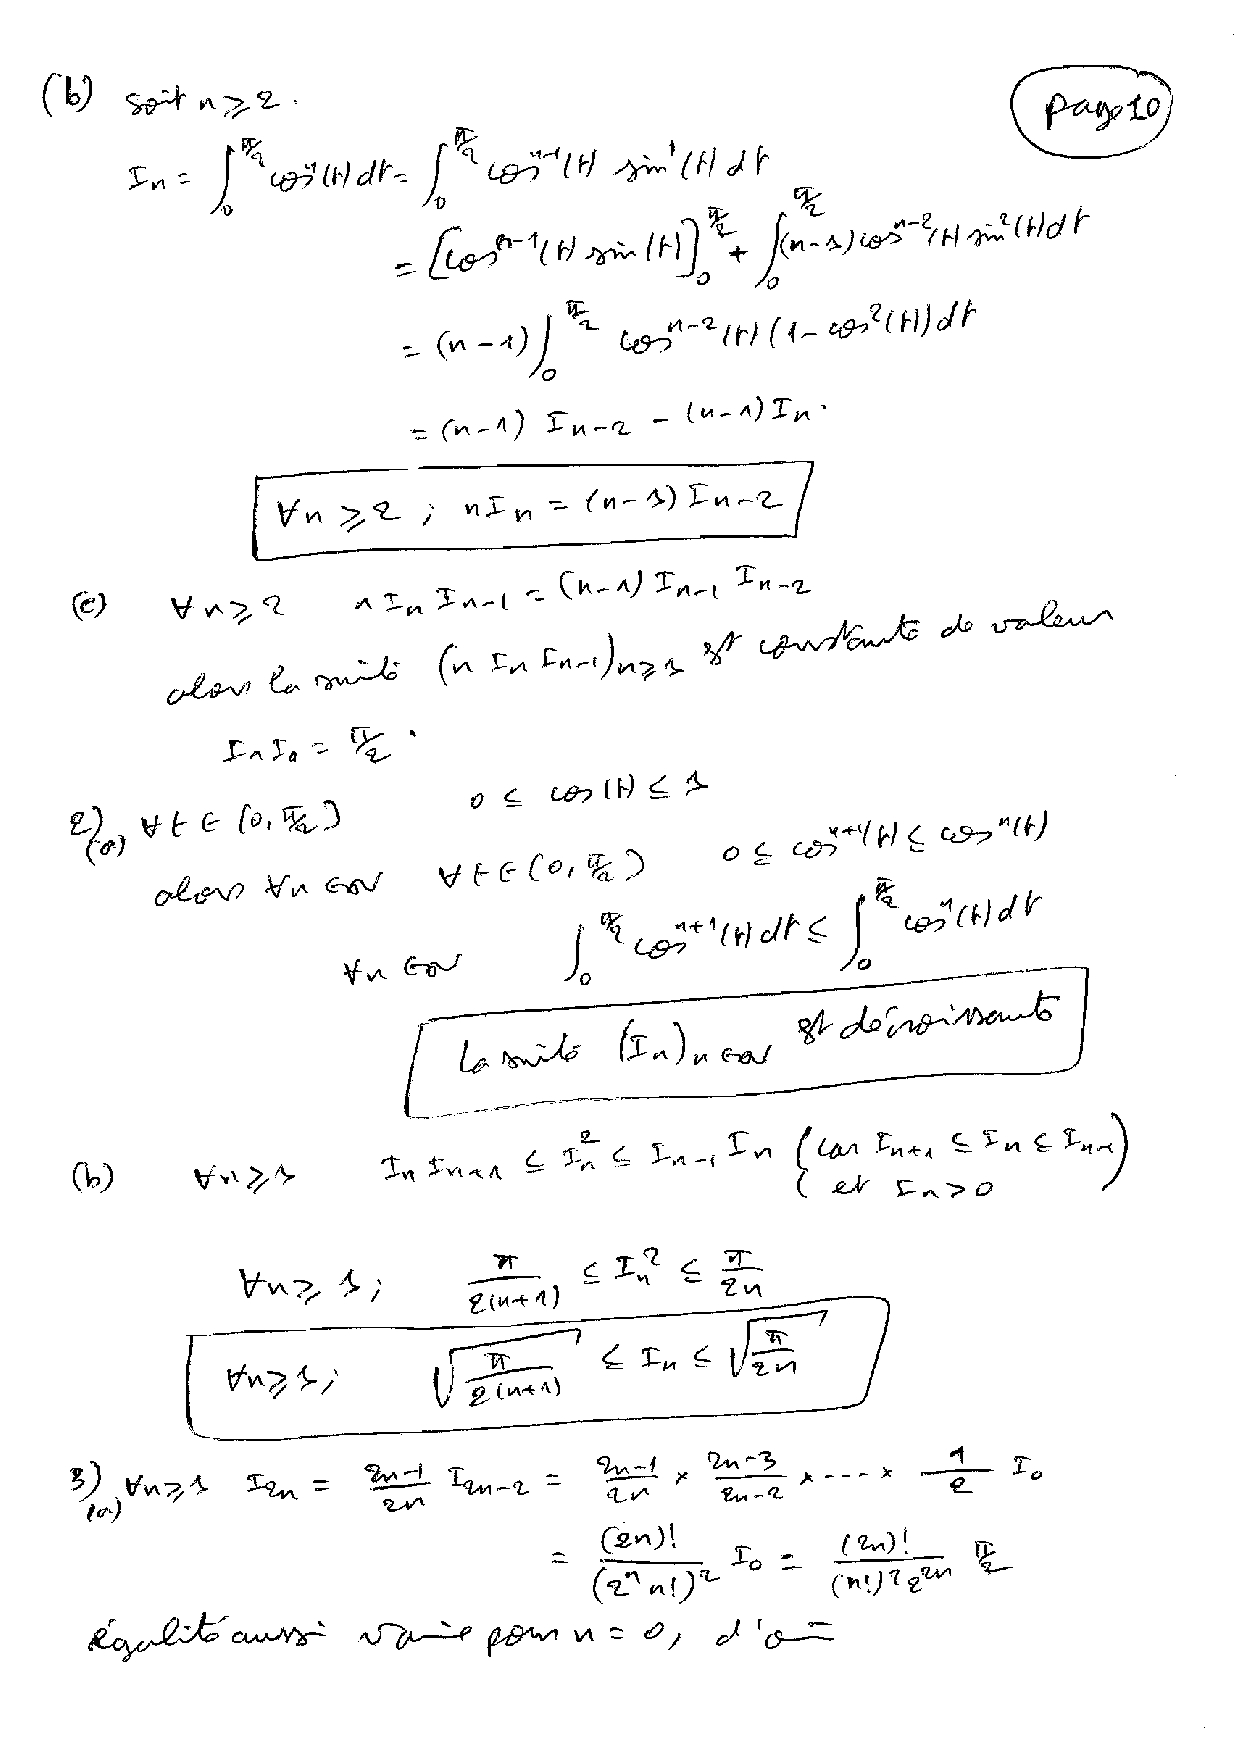 (b) soit n ⩾ 2.
page 10
I_n = ∫_0^{π/2} cos^n(t) dt = ∫_0^{π/2} cos^{n-1}(t) sin'(t) dt
= [cos^{n-1}(t) sin(t)]_0^{π/2} + ∫_0^{π/2} (n-1) cos^{n-2}(t) sin^2(t) dt
= (n-1) ∫_0^{π/2} cos^{n-2}(t) (1 - cos^2(t)) dt
= (n-1) I_{n-2} - (n-1) I_n.
∀n ⩾ 2 ; n I_n = (n-1) I_{n-2}
(c) ∀n ⩾ 2 n I_n I_{n-1} = (n-1) I_{n-1} I_{n-2}
alors la suite (n I_n I_{n-1})_{n⩾1} est constante de valeur
I_1 I_0 = π/2.
2) (a) ∀t ∈ [0, π/2] 0 ≤ cos(t) ≤ 1
alors ∀n ∈ ℕ ∀t ∈ [0, π/2] 0 ≤ cos^{n+1}(t) ≤ cos^n(t)
∀n ∈ ℕ ∫_0^{π/2} cos^{n+1}(t) dt ≤ ∫_0^{π/2} cos^n(t) dt
La suite (I_n)_{n∈ℕ} est décroissante
(b) ∀n ⩾ 1 I_n I_{n+1} ≤ I_n^2 ≤ I_{n-1} I_n (car I_{n+1} ≤ I_n ≤ I_{n-1}
et I_n > 0)
∀n ⩾ 1 ; π/(2(n+1)) ≤ I_n^2 ≤ π/(2n)
∀n ⩾ 1 ; √(π/(2(n+1))) ≤ I_n ≤ √(π/(2n))
3) (a) ∀n ⩾ 1 I_{2n} = (2n-1)/(2n) I_{2n-2} = (2n-1)/(2n) × (2n-3)/(2n-2) × --- × 1/2 I_0
= (2n)!/(2^n n!)^2 I_0 = (2n)!/((n!)^2 2^{2n}) π/2
égalité aussi vraie pour n = 0, d'où